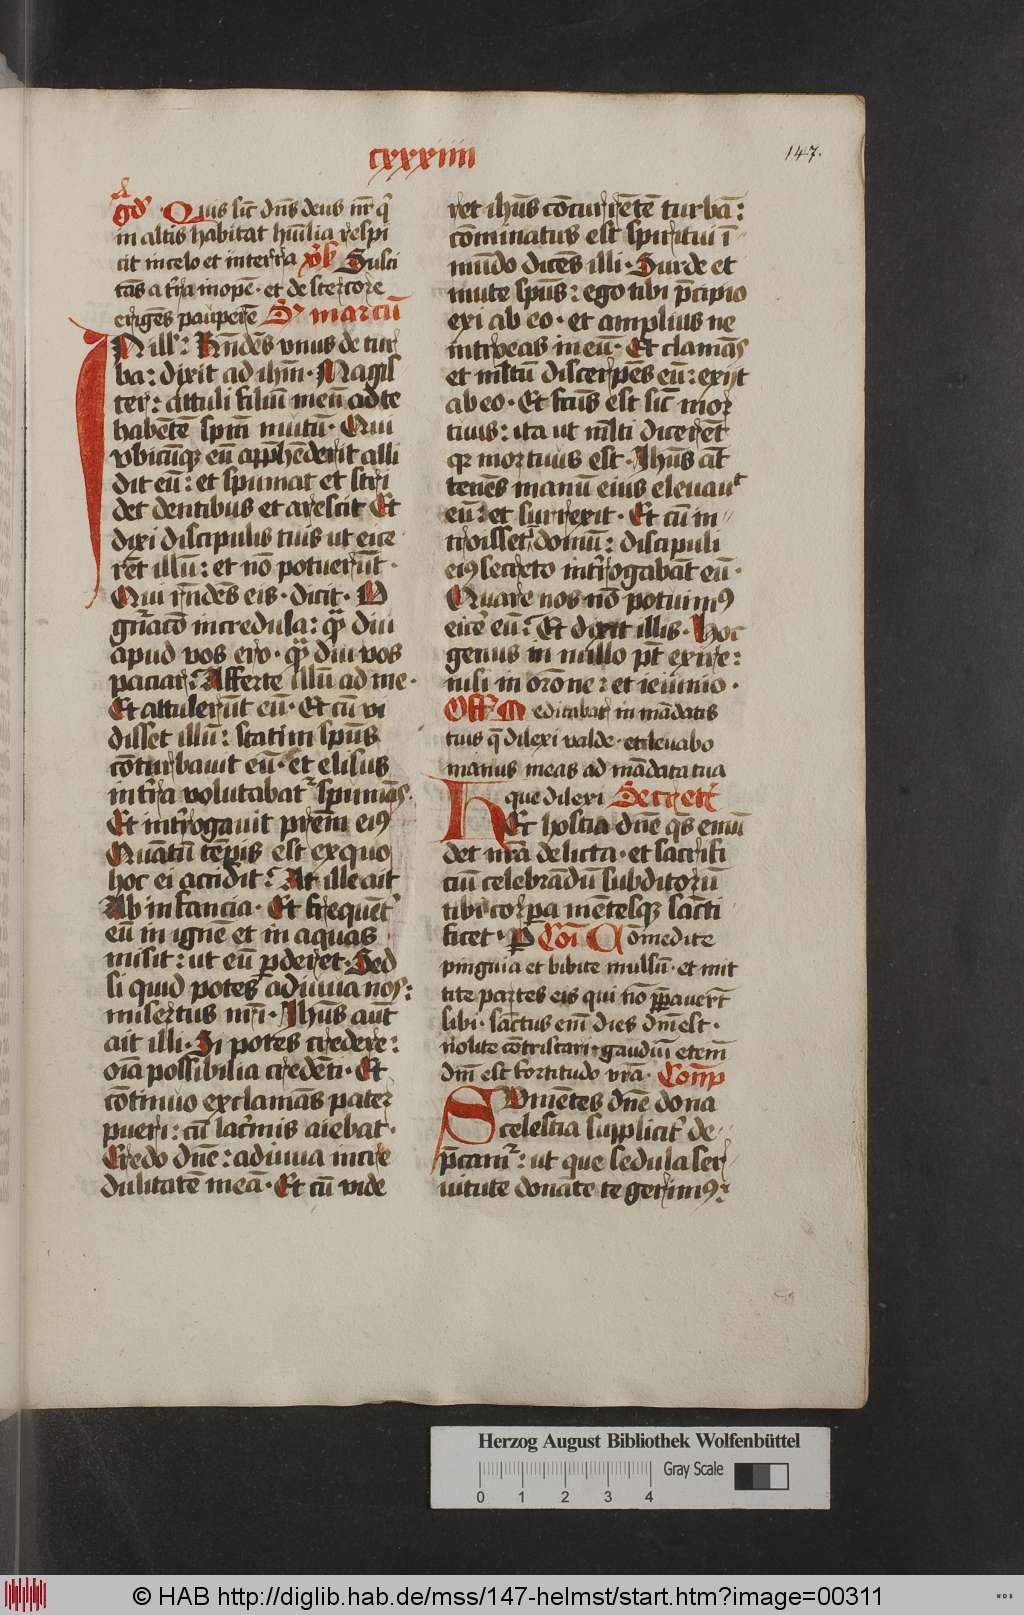 cxxxiiii
147.
Gd Quis sic̄ dn̄s deus nr̄ qͥ
in altis habitat hūilia respi
cit in celo et in terra v̓s Susci
tās a t̓ra inopē · et de stercore
erigēs pauperē S̄ marcū
In ill̓: Rn̄dēs vnus de tur
ba: dixit ad ihm̄ · Magis
ter: attuli filiū meū ad te
habētē spm̄ mutū · Qui
vbicūq̧ eū app̄hēderit alli
dit eū: et spumat et stri
det dentibus et arescit Et
dixi discipulis tuis ut eice
rēt illū: et nō potuerūt ·
Qui rn̄dēs eis · dicit · O
gn̄acō incredula: qͣ̄ diu
apud vos ero · qͣ̄ diu vos
paciar: Afferte illū ad me ·
Et attulerūt eū · Et cū vi
disset illū: statim spūs
cōturbauit eū · et elisus
in t̓ra volutabat᷑ spumās ·
Et int̓rogauit prēm eiꝰ
Quātū tēpis est ex quo
hoc ei accidit: At ille ait
Ab infancia · Et frequēt᷑
eū in ignē et in aquas
misit: ut eū ꝑderet · Sed
si quid potes adiuua nos:
misertus nr̄i · Ihūs aūt
ait illi · Si potes credere:
oīa possibilia credēti · Et
cōtinuo exclamās pater
pueri: cū lac̓mis aiebat ·
Credo dn̄e: adiuua incre
dulitatē meā · Et cū vide
ret ihūs cōcurrētē turbā:
cōminatus est spiritui ī-
mūdo dicēs illi · Surde et
mute spūs: ego tibi p̄cipio
exi ab eo · et amplius ne
introeas in eū · Et clamās
et ml̓tū discerpēs eū: exijt
ab eo · Et fcūs est sic̄ mor
tuus: ita ut ml̓ti dicerēt
qr mortuus est · Ihūs aūt
tenēs manū eius eleuauͭ
eū: et surrexit · Et cū in-
troisset domū: discipuli
eiꝰ secreto int̓rogabāt eū ·
Quare nos nō potuimꝰ
eic̓e eū: Et dixit illis · Hoc
genus in nullo pt̄ exire:
nisi in orōne: et ieiunio ·
Off̄ Meditabar in mādatis
tuis q̄ dilexi valde · et leuabo
manus meas ad mādata tua
que dilexi Secret᷑
Hec hostia dn̄e qs̄ emū
det nr̄a delicta · et sacrifi
ciū celebrādū subditorū
tibi corpa mētesq̧ sācti
ficet · P Cōi Comedite
pinguia et bibite mulsū · et mit
tite partes eis qui nō p̄pauer̄t
sibi · sāctus em̄ dies dn̄i est ·
nolite cōtristari · gaudiū etem̄
dn̄i est fortitudo vr̄a · Comp̄
Sumētes dn̄e dona
celestia supplicit᷑ de-
p̄camr᷑: ut que sedula ser
uitute donāte te gerimꝰ:
Herzog August Bibliothek Wolfenbüttel
Gray Scale
0 1 2 3 4
© HAB http://diglib.hab.de/mss/147-helmst/start.htm?image=00311